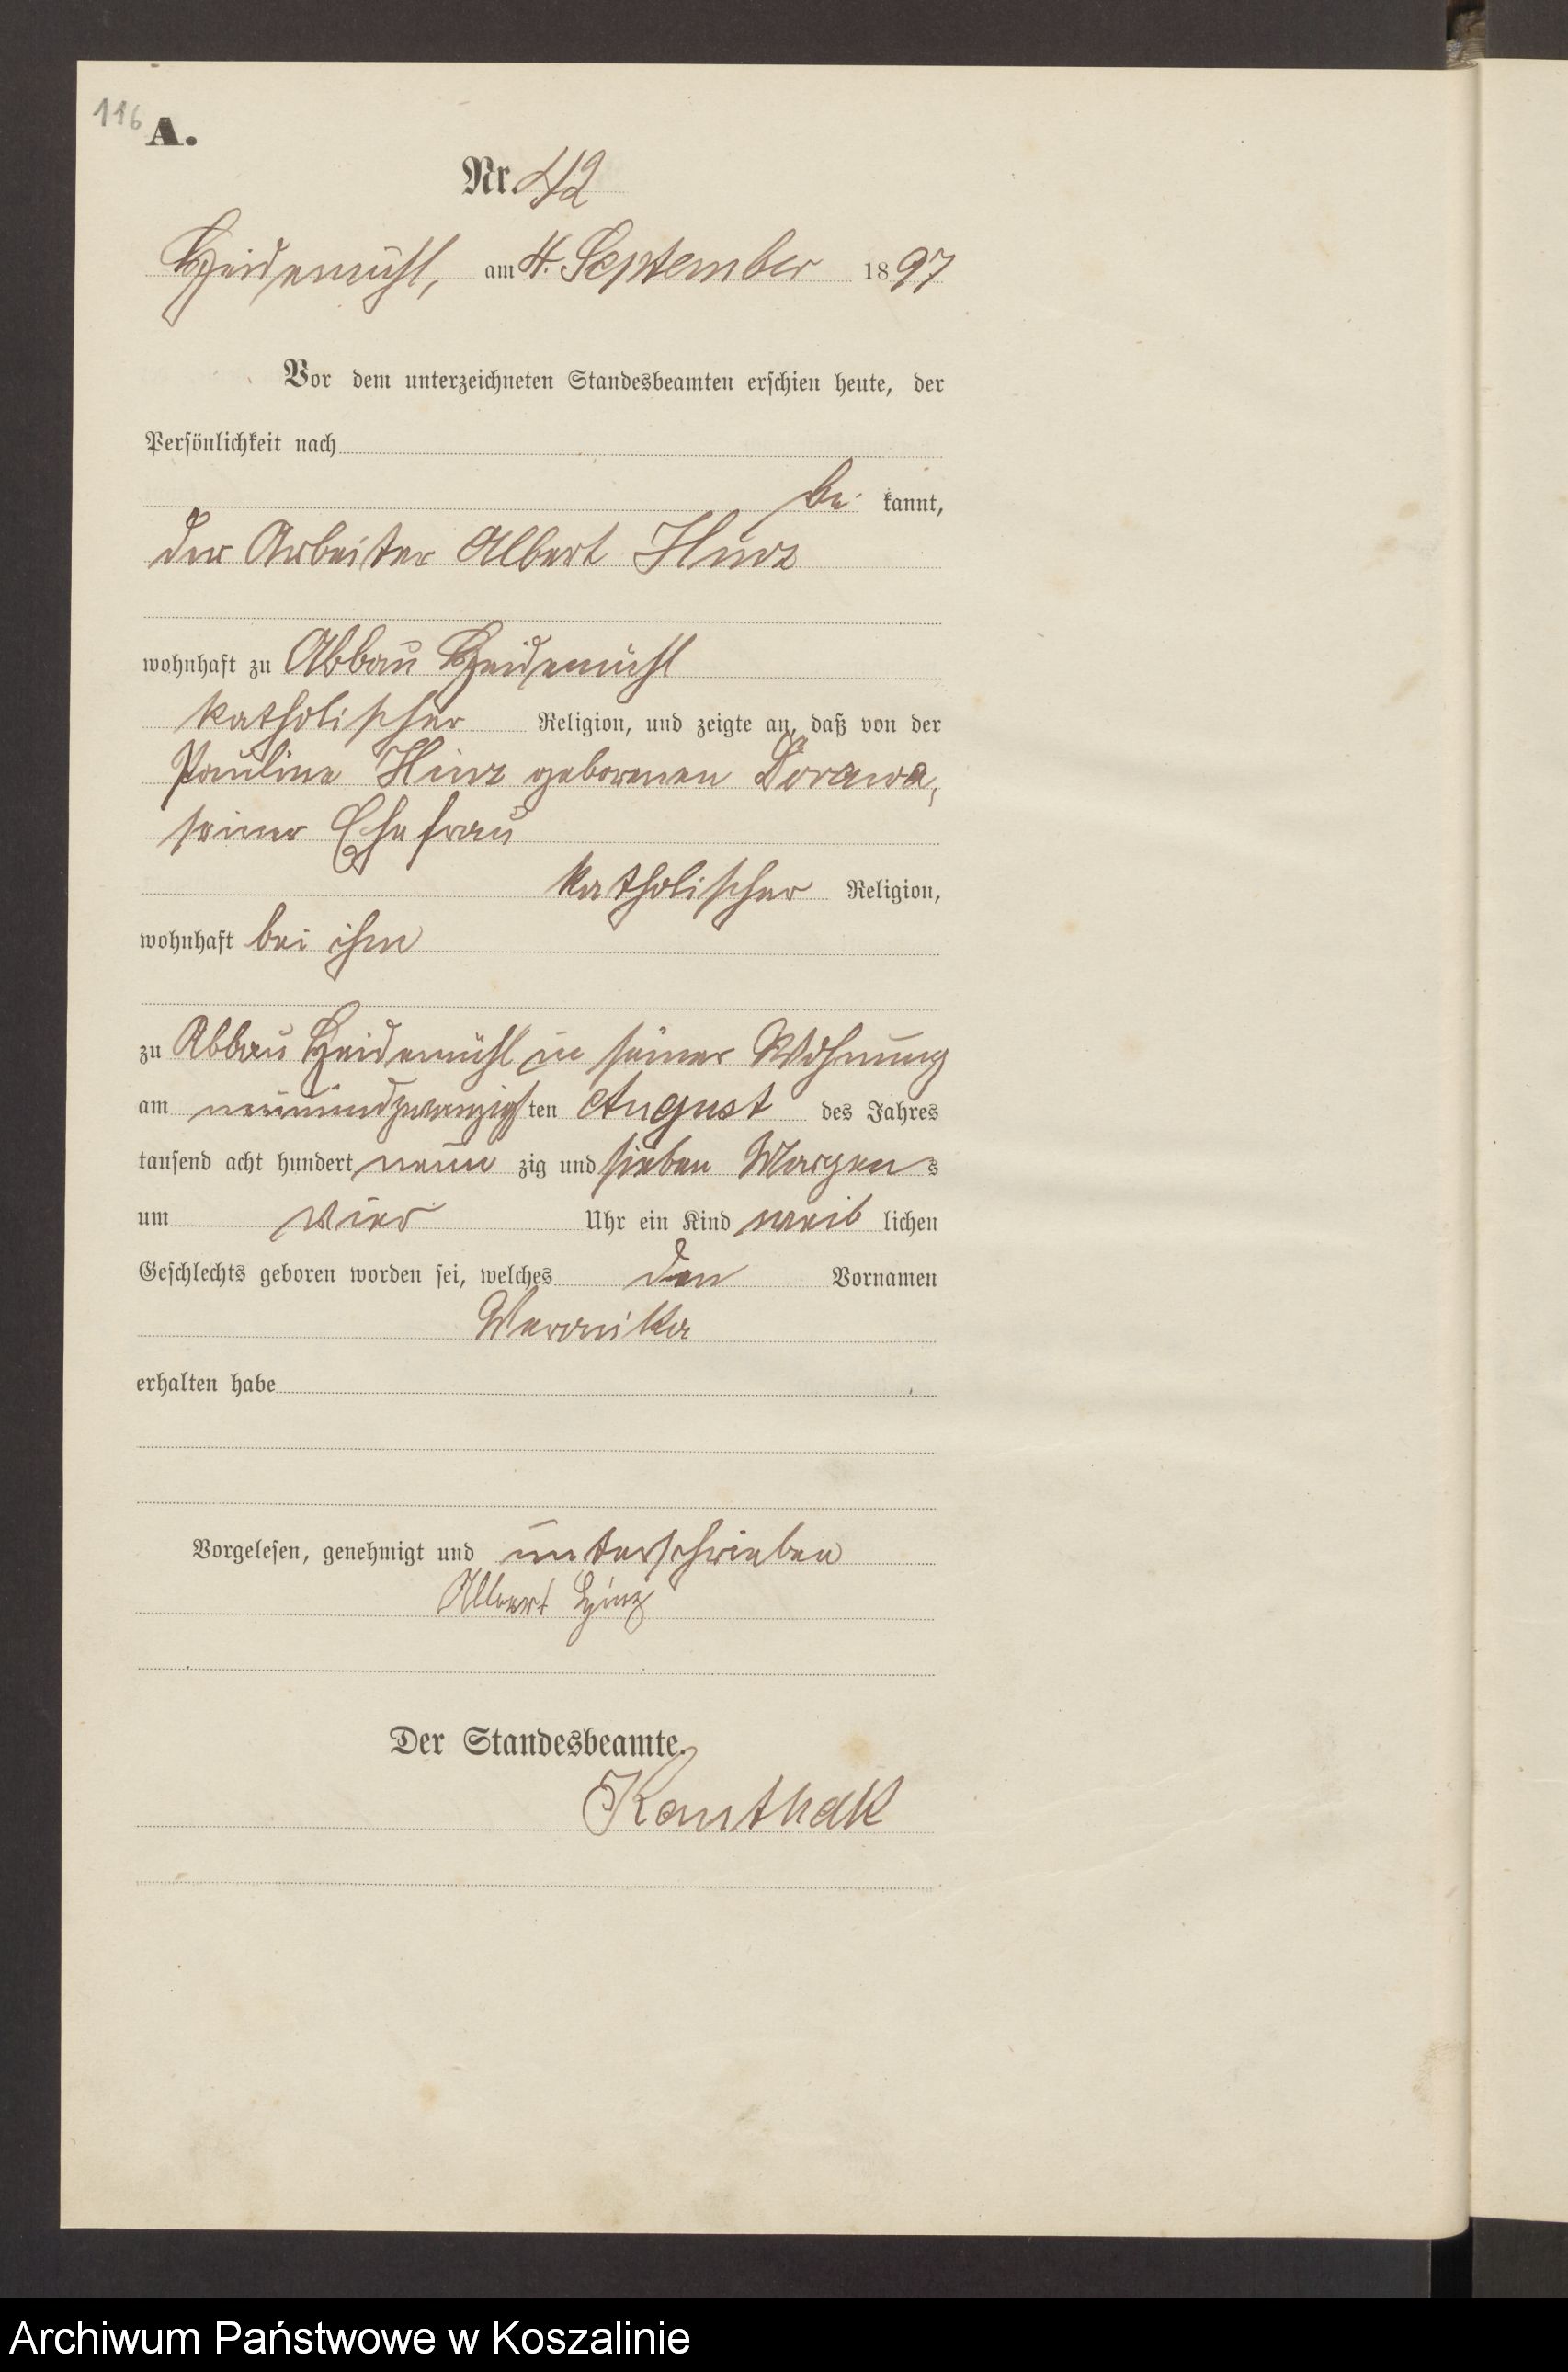 116 A.
Nr. 42
Heidemühl, am 4. September 1897
Vor dem unterzeichneten Standesbeamten erschien heute, der
Persönlichkeit nach
be kannt,
der Arbeiter Albert Hinz
wohnhaft zu Abbau Heidemühl
katholischer Religion, und zeigte an, daß von der
Pauline Hinz geborenen Dorawa,
seiner Ehefrau
katholischer Religion,
wohnhaft bei ihm
zu Abbau Heidemühl in seiner Wohnung
am neunundzwanzigsten August des Jahres
tausend acht hundert neun zig und sieben Morgens
um vier Uhr ein Kind weib lichen
Geschlechts geboren worden sei, welches den Vornamen
Veronika
erhalten habe
Vorgelesen, genehmigt und unterschrieben
Albert Hinz
Der Standesbeamte.
Kanthak
Archiwum Państwowe w Koszalinie